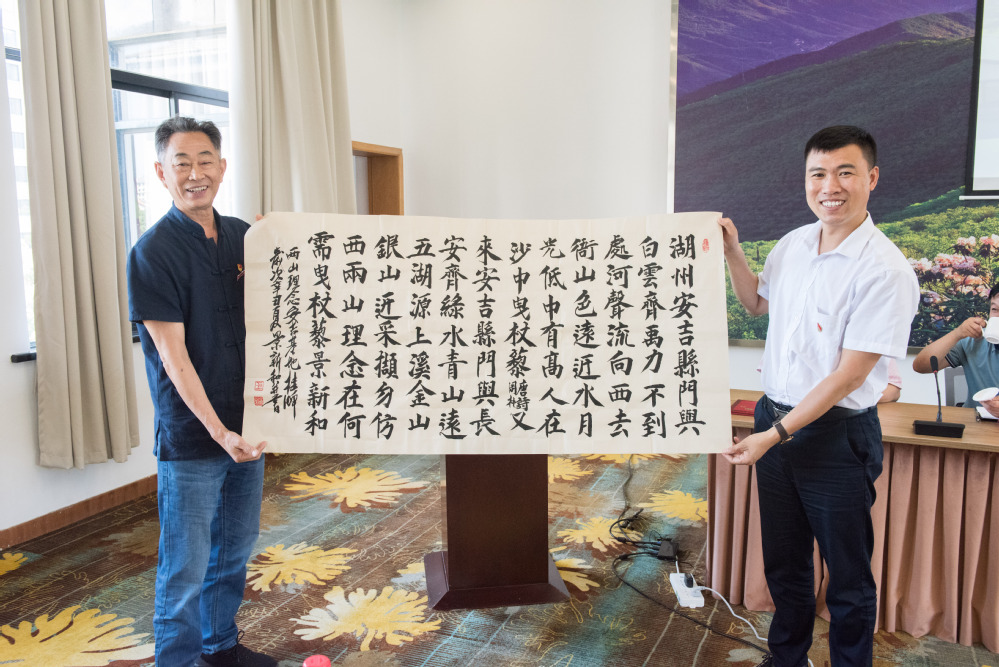 湖州安吉縣門與
白雲齊禹力不到
處河聲流向西去
衙山色遠近水月
光低中有高人在
沙中曳杖藜唐詩周朴又
來安吉縣門與長
安齊綠水青山遠
五湖源上溪金山
銀山近采擷勿仿
西兩山理念在何
需曳杖藜景新和
兩山理念安吉
歲次辛丑夏景新和并書